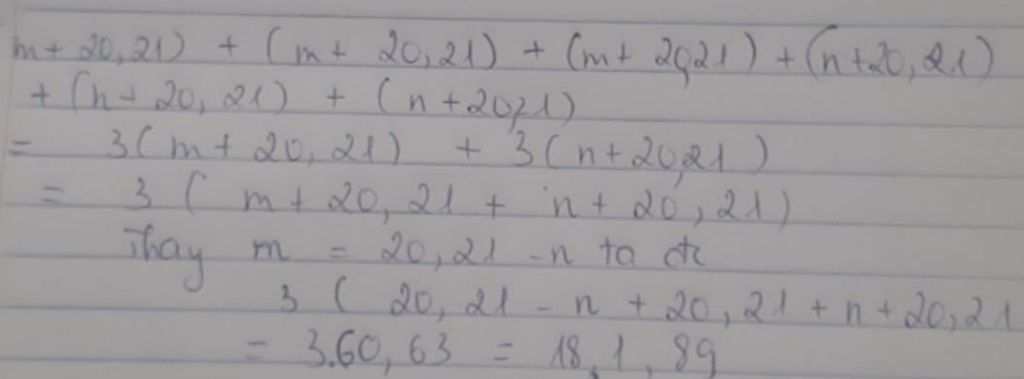 m + 20,21) + (m + 20,21) + (m + 20,21) + (n + 20,21)
+ (n + 20,21) + (n + 20,21)
= 3(m + 20,21) + 3(n + 20,21)
= 3 ( m + 20,21 + n + 20,21)
Thay m = 20,21 - n ta đc
3 ( 20,21 - n + 20,21 + n + 20,21
= 3.60,63 = 18,1,89